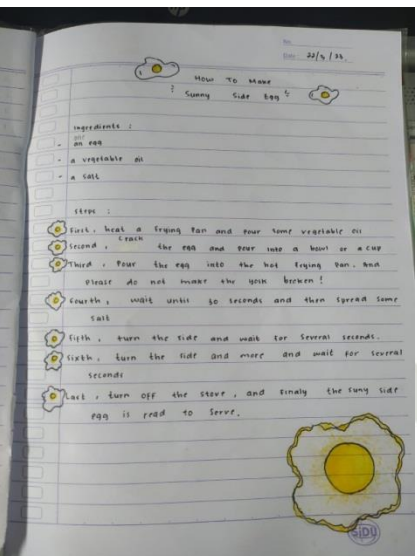 No.
Date 22/3/23.
How To Make
Sunny Side Egg
Ingredients :
- an egg
- a vegetable oil
- a salt
Steps :
First, heat a frying pan and pour some vegetable oil
Second, crack the egg and pour into a bowl or a cup
Third, pour the egg into the hot frying pan. And
please do not make the yolk broken !
Fourth, wait until 30 seconds and then spread some
salt
Fifth, turn the side and wait for several seconds.
Sixth, turn the side and more and wait for several
seconds
Last, turn off the stove, and finaly the suny side
egg is read to serve.
SiDU